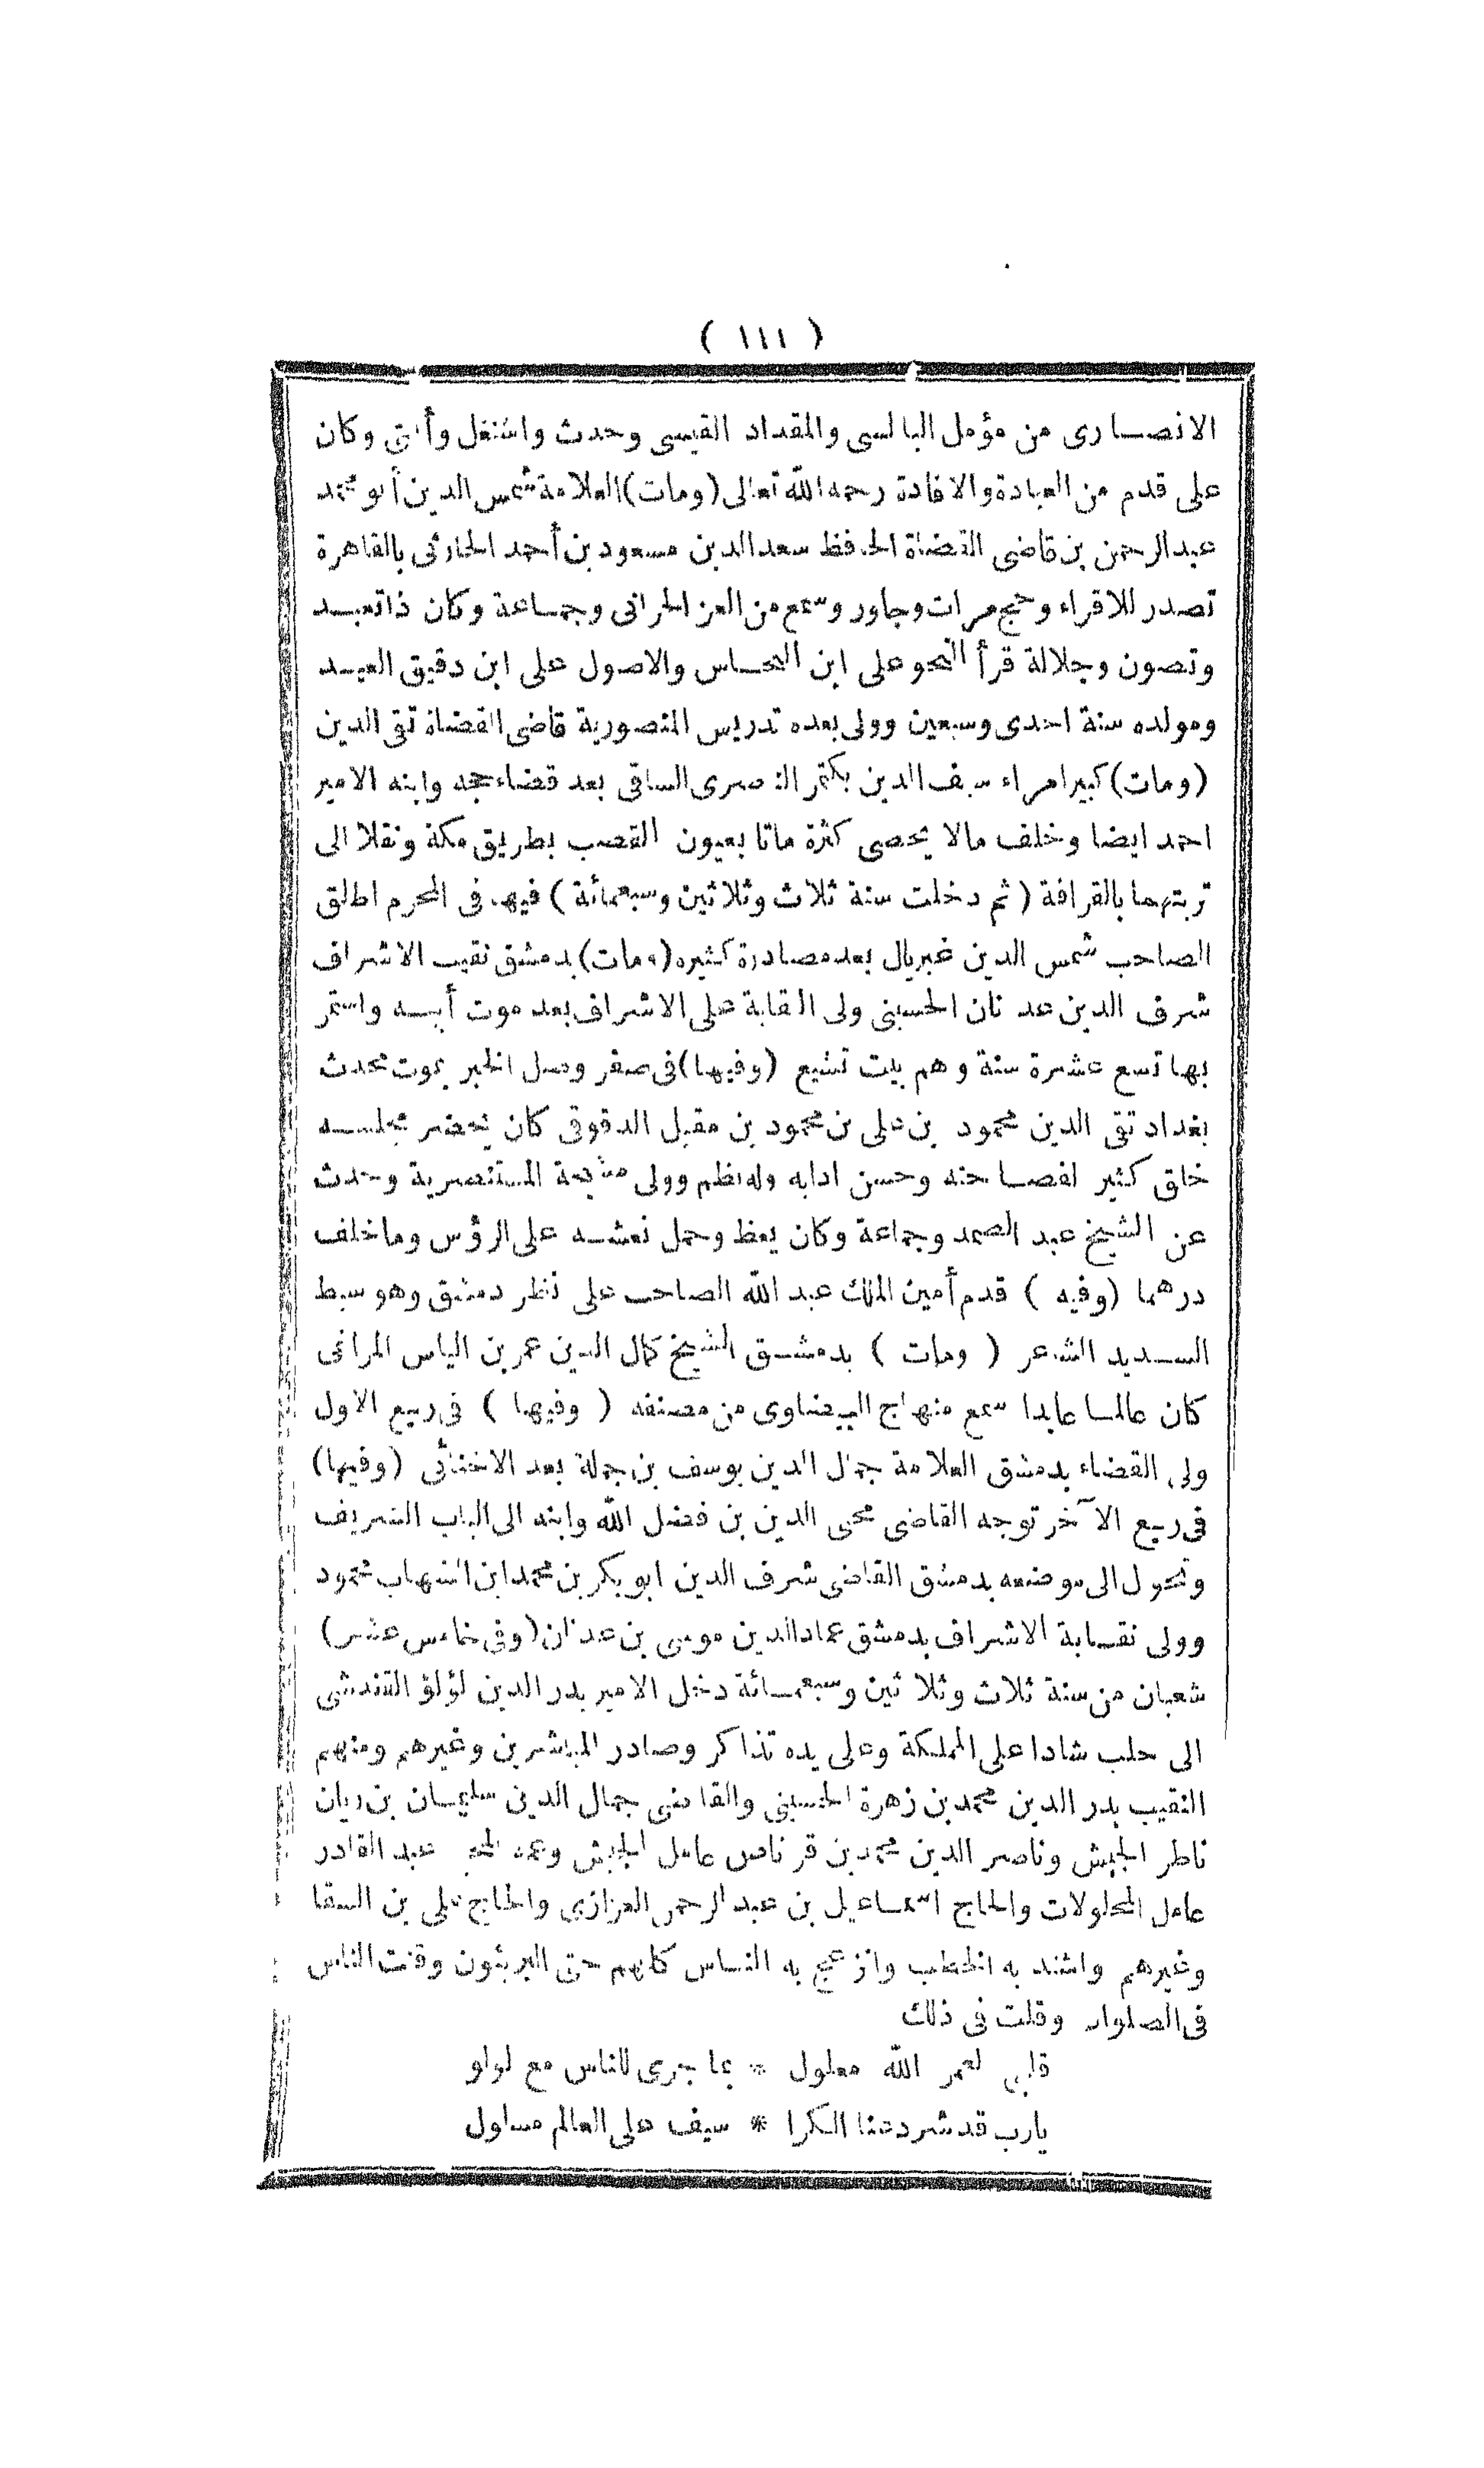 ( ١١١ )
الانصارى من مؤمل البالسى والمقداد القيسى وحدث واشتغل وأفتى وكان
على قدم من العبادة والافادة رحمه الله تعالى (ومات) العلامة شمس الدين أبو محمد
عبد الرحمن بن قاضى القضاة الحافظ سعد الدين مسعود بن أحمد الحارثى بالقاهرة
تصدر للاقراء وحج مرات وجاور وسمع من العز الحرانى وجماعة وكان ذا تعبد
وتصون وجلالة قرأ النحو على ابن النحاس والاصول على ابن دقيق العيد
ومولده سنة احدى وسبعين وولى بعده تدريس المنصورية قاضى القضاة تقى الدين
(ومات) كبير امراء سيف الدين بكتمر الناصرى الساقى بعد قضاء حجه وابنه الامير
احمد ايضا وخلف مالا يحصى كثرة ماتا بعيون القصب بطريق مكة ونقلا الى
تربتهما بالقرافة (ثم دخلت سنة ثلاث وثلاثين وسبعمائة) فيها فى المحرم اطلق
الصاحب شمس الدين غبريال بعد مصادرة كثيره (ومات) بدمشق نقيب الاشراف
شرف الدين عدنان الحسينى ولى النقابة على الاشراف بعد موت أبيه واستمر
بها تسع عشرة سنة وهم بيت تشيع (وفيها) فى صفر وصل الخبر بموت محدث
بغداد تقى الدين محمود بن على بن محمود بن مقبل الدقوقى كان يحضر مجلسه
خلق كثير لفصاحته وحسن ادابه وله نظم وولى مشيخة المستنصرية وحدث
عن الشيخ عبد الصمد وجماعة وكان يعظ وحمل نعشه على الرؤس وما خلف
درهما (وفيه) قدم أمين الملك عبد الله الصاحب على نظر دمشق وهو سبط
السديد الشاعر (ومات) بدمشق الشيخ كمال الدين عمر بن الياس المراغى
كان عالما عابدا سمع منهاج البيضاوى من مصنفه (وفيها) فى ربيع الاول
ولى القضاء بدمشق العلامة جمال الدين يوسف بن جملة بعد الاخنائى (وفيها)
فى ربيع الآخر توجه القاضى محيى الدين بن فضل الله وابنه الى الباب الشريف
وتحول الى موضعه بدمشق القاضى شرف الدين ابو بكر بن محمد ابن الشهاب محمود
وولى نقابة الاشراف بدمشق عماد الدين موسى بن عدنان (وفى خامس عشر)
شعبان من سنة ثلاث وثلاثين وسبعمائة دخل الامير بدر الدين لؤلؤ القندشى
الى حلب شادا على المملكة وعلى يده تذاكر وصادر المباشرين وغيرهم ومنهم
النقيب بدر الدين محمد بن زهرة الحسينى والقاضى جمال الدين سليمان بن ريان
ناظر الجيش وناصر الدين محمد بن قرناص عامل الجيش وعمه عبد القادر
عامل المحلولات والحاج اسماعيل بن عبد الرحمن العزازى والحاج على بن السقا
وغيرهم واشتد به الخطب وانزعج به الناس كلهم حتى البريئون وقنت الناس
فى الصلوات وقلت فى ذلك
قلبى لعمر الله معلول * بما جرى للناس مع لولو
يارب قد شرد عنا الكرا * سيف على العالم مسلول